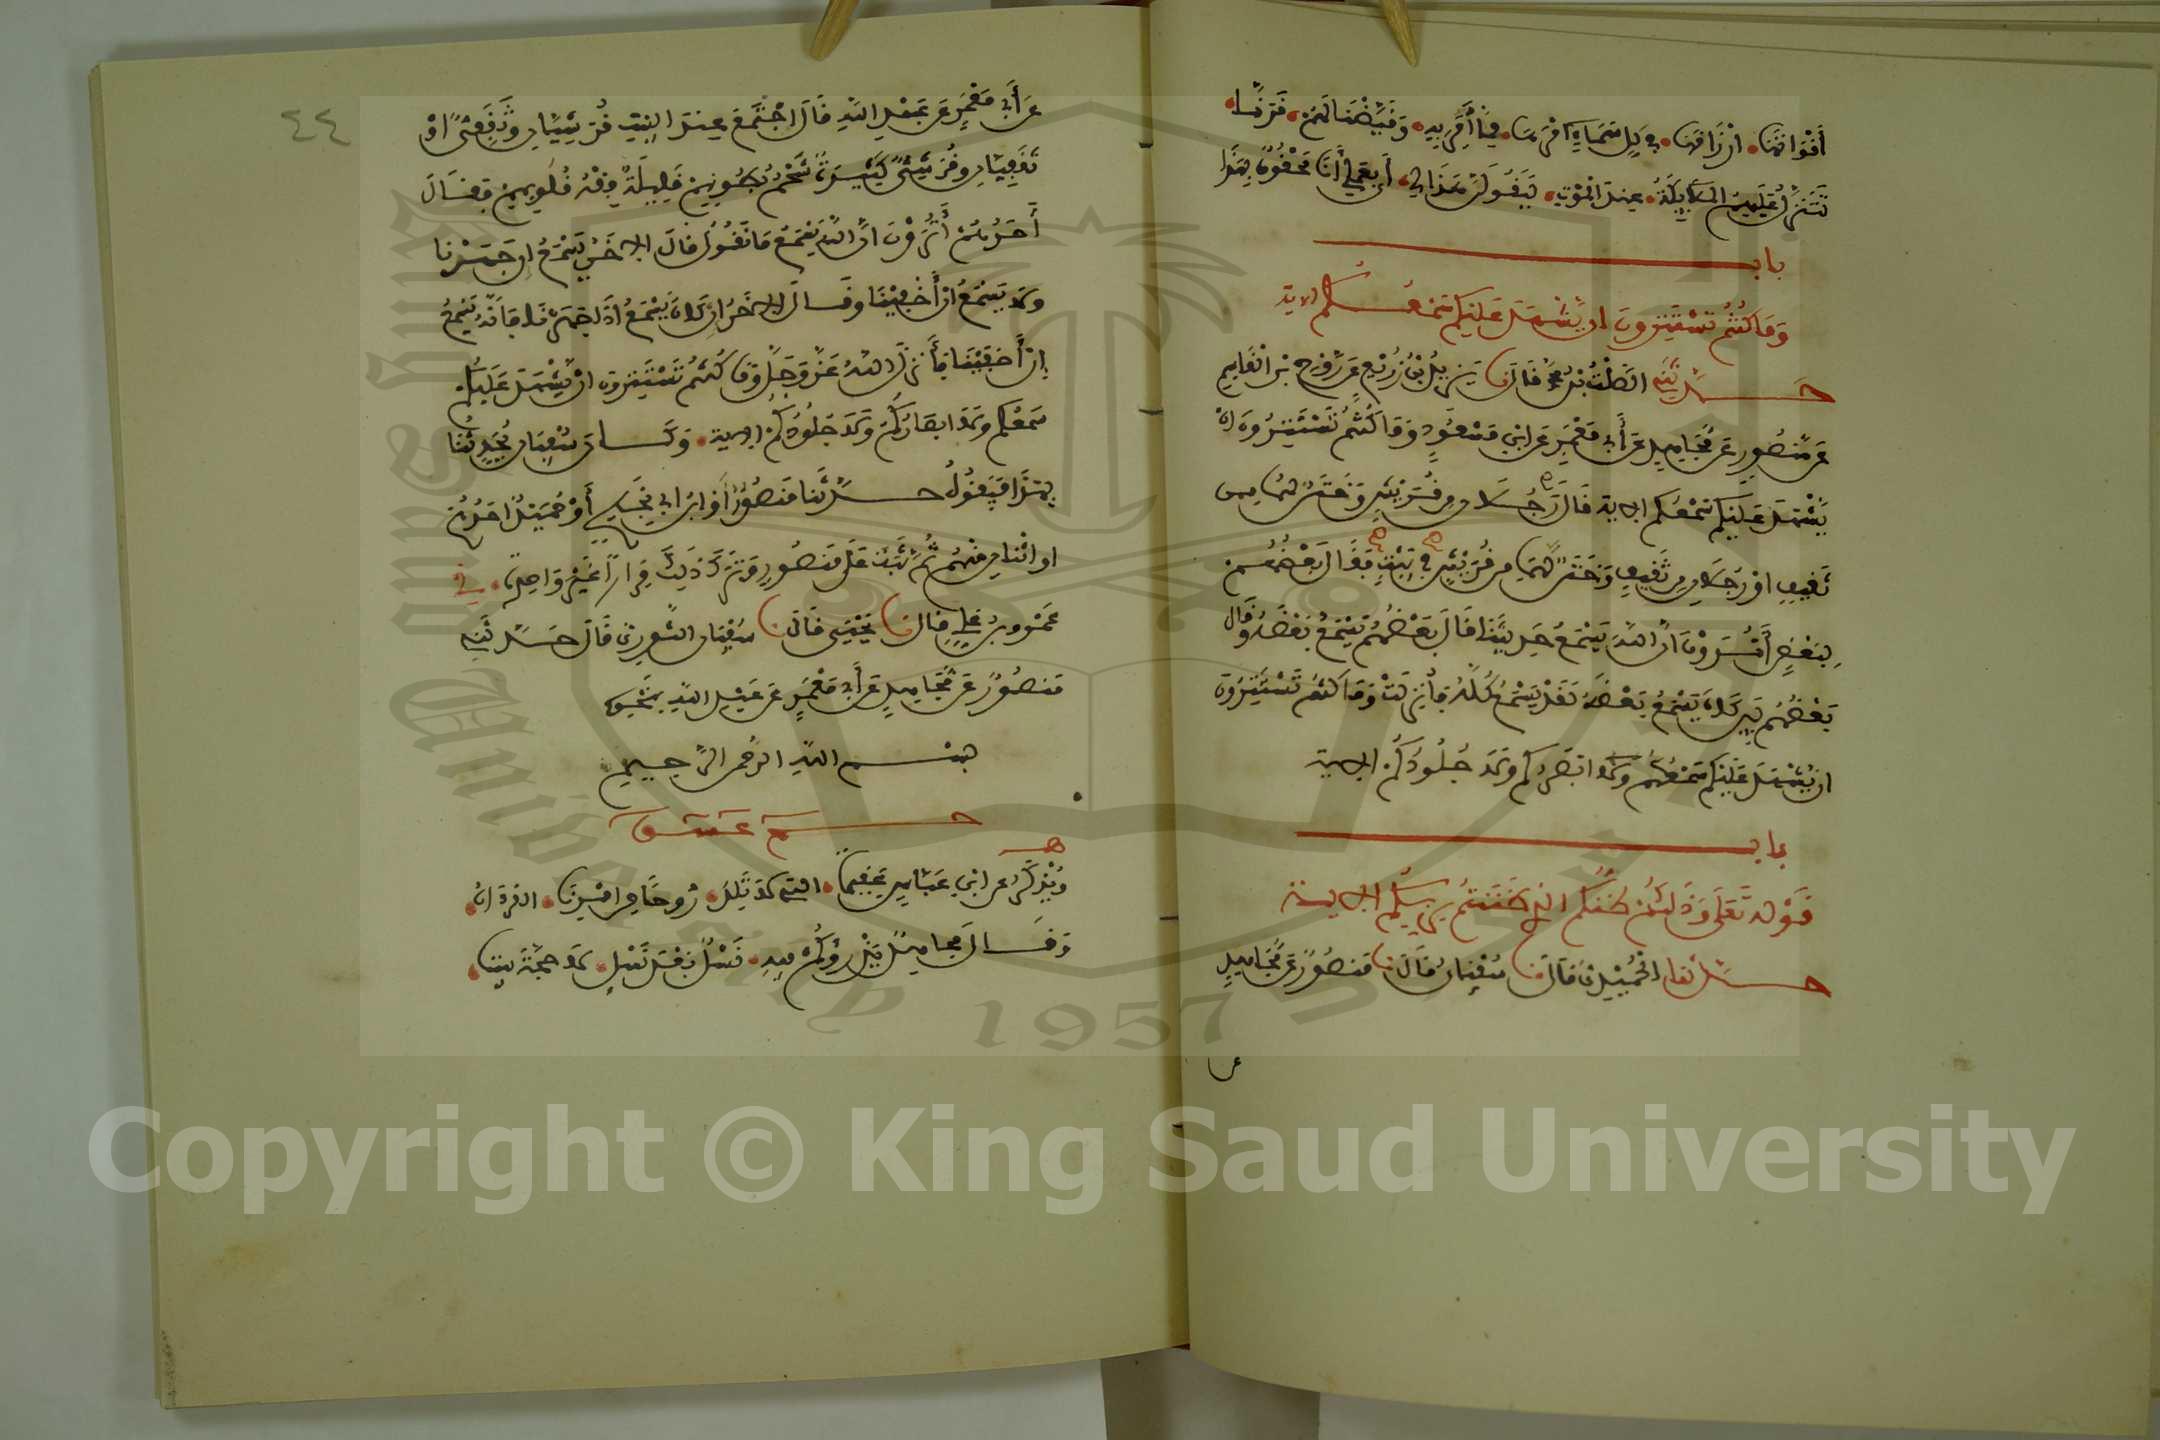 أَقْوَاتَهَا. أَرْزَاقَهَا. في كل سَمَاءٍ أَمْرَهَا. مما أَمَرَ به. وَقَيَّضْنَا لَهُمْ. قَرَنَّا.
تَتَنَزَّلُ عَلَيْهِمُ الملائكة. عند الموت. ليقولن هذا لي. أي بعملي أنا محقوق بهذا
باب
وما كنتم تستترون ان يشهد عليكم سمعكم الاية
حدثني الصلت بن محمد قال نا يزيد بن زريع عن روح بن القاسم
عن منصور عن مجاهد عن أبي معمر عن ابن مسعود وما كنتم تستترون ان
يشهد عليكم سمعكم الاية قال رجلان من قريش وختن لهما من
ثقيف او رجلان من ثقيف وختن لهما من قريش في بيت فقال بعضهم
لبعض أترون ان الله يسمع حديثنا قال بعضهم يسمع بعضه وقال
بعضهم لين كان يسمع بعضه لقد يسمع كله فأنزلت وما كنتم تستترون
ان يشهد عليكم سمعكم ولا ابصاركم ولا جلودكم الاية
باب
قوله تعلى وذلكم ظنكم الذي ظننتم بربكم الاية
حدثنا الحميدي قال نا سفيان قال نا منصور عن مجاهد
عن
٤٤
عن أبي معمر عن عبد الله قال اجتمع عند البيت قرشيان وثقفي او
ثقفيان وقرشي كثيرة شحم بطونهم قليلة فقه قلوبهم فقال
أحدهم أترون ان الله يسمع ما نقول قال الاخر يسمع ان جهرنا
ولا يسمع ان أخفينا وقال الاخر ان كان يسمع اذا جهرنا فانه يسمع
إذا أخفينا فأنزل الله عز وجل وما كنتم تستترون ان يشهد عليكم
سمعكم ولا ابصاركم ولا جلودكم الاية. وكان سفيان يحدثنا
بهذا فيقول حدثنا منصور أو ابن ابي نجيح أو حميد احدهم
او اثنان منهم ثم ثبت على منصور وترك ذلك مرارا غير واحدة.
عمرو بن علي قال نا يحيى قال نا سفيان الثوري قال حدثني
منصور عن مجاهد عن أبي معمر عن عبد الله بنحوه
بسم الله الرحمن الرحيم
حم عسق
ويذكر عن ابن عباس عقيما. التي لا تلد. روحا من امرنا. القرءان.
وقال مجاهد يذرؤكم فيه. نسل بعد نسل. لا حجة بيننا.